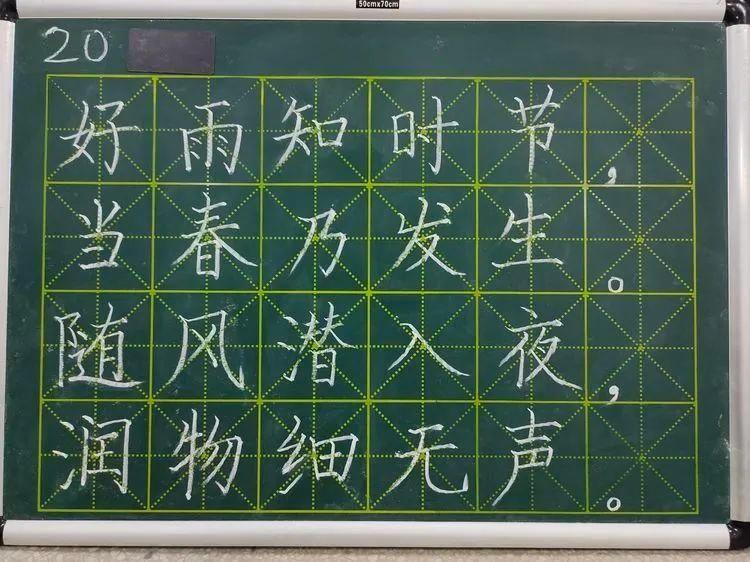 50cmx70cm
20
好雨知时节,
当春乃发生。
随风潜入夜,
润物细无声。